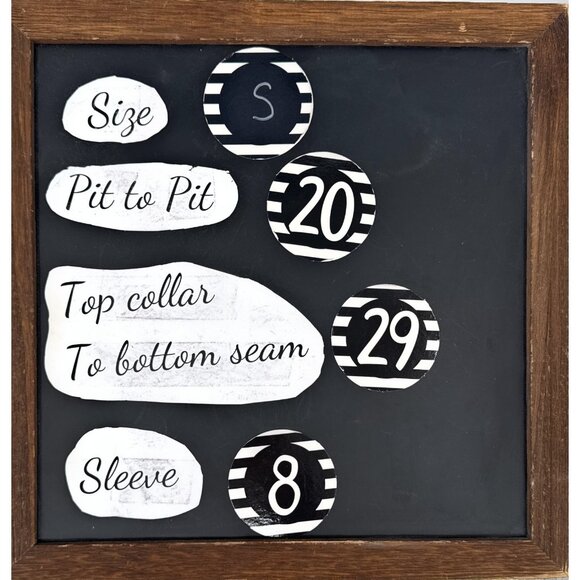 Size S
Pit to Pit 20
Top collar
To bottom seam 29
Sleeve 8